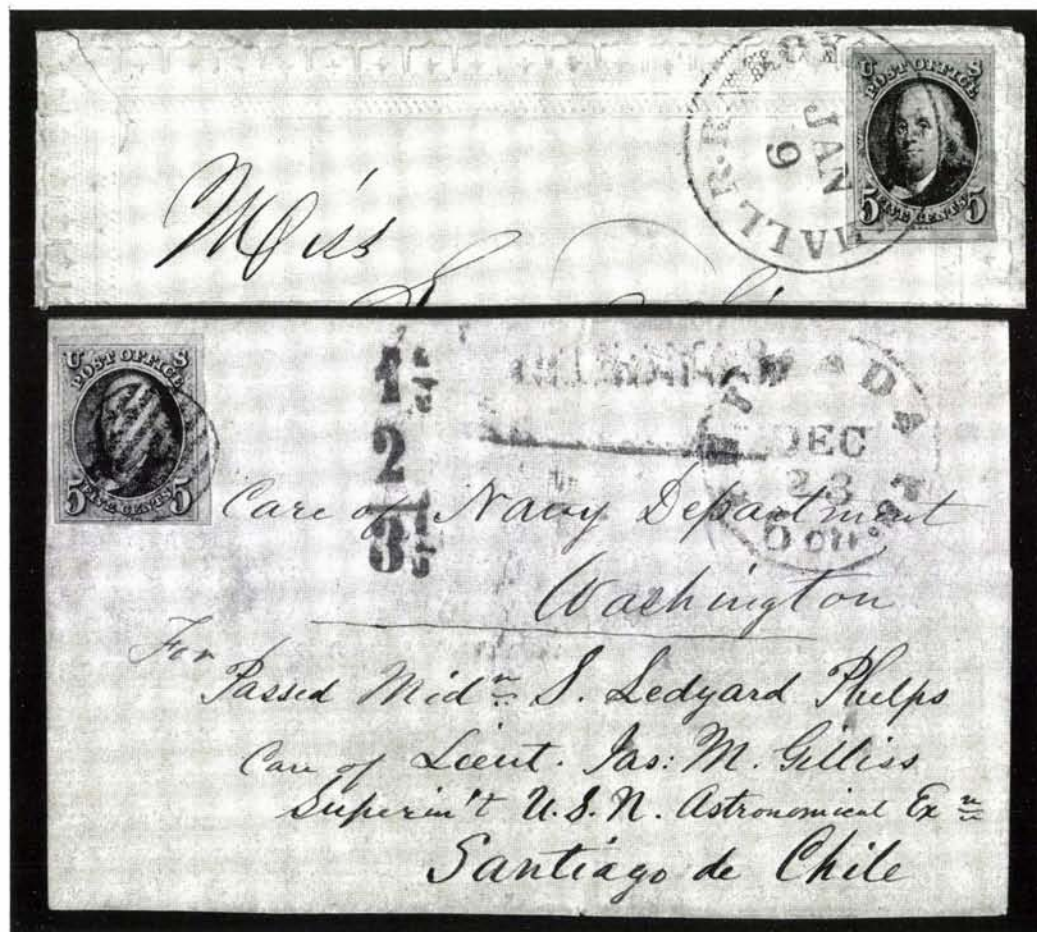 U S
POST OFFICE
5 FIVE CENTS 5
JAN
6
Miss
U S
POST OFFICE
5 FIVE CENTS 5
DEC
23
OHO.
1
2
3
Care of Navy Department
Washington
For
Passed Midn S. Ledyard Phelps
Care of Lieut. Jas: M. Gilliss
Superin't U.S.N. Astronomical Exn
Santiago de Chile